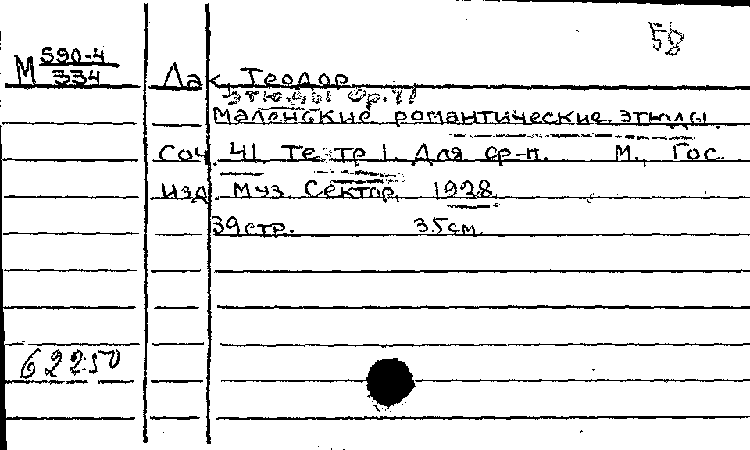 58
М 590-4
334
Лак, Теодор
Этюды Ор. 41
Маленькие романтические этюды.
Соч. 41. Тетр 1. Для ф-п. М., Гос.
Изд. Муз. Сектор, 1928.
39 стр. 35 см.
62250